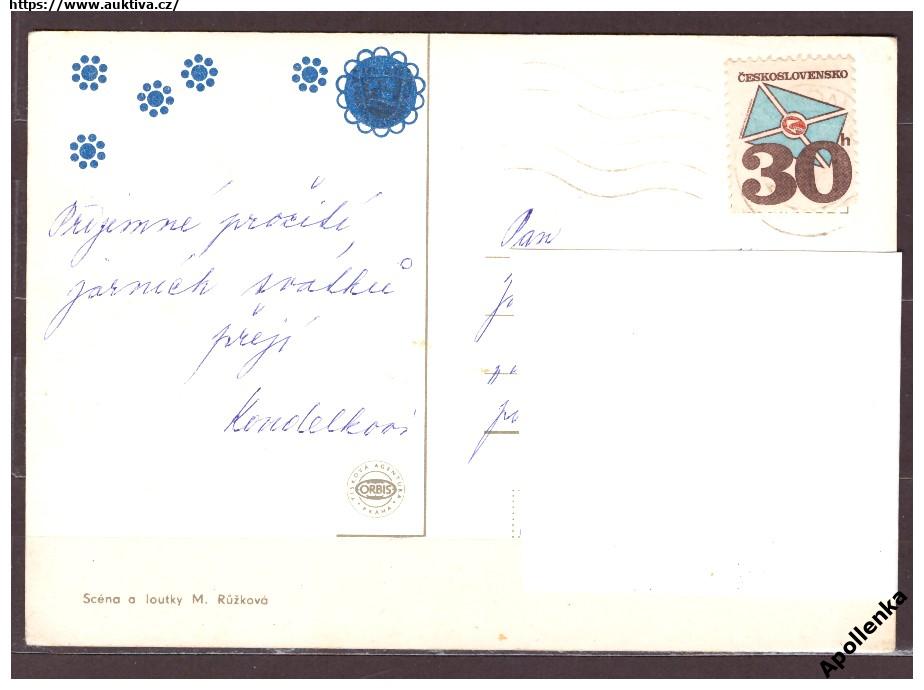 https://www.auktiva.cz/
ČESKOSLOVENSKO
30h
Příjemné pročití
jarních svátků
přejí
Kondelkovi
Pan
TISKOVÁ AGENTURA
ORBIS
PRAHA
Scéna a loutky M. Růžková
Apollenka